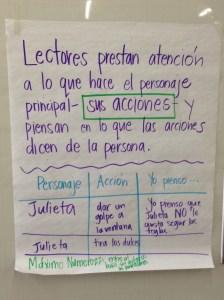 Lectores prestan atención
a lo que hace el personaje
principal- sus acciones- y
piensan en lo que las acciones
dicen de la persona.
Personaje Acción Yo pienso...
Julieta dar un golpe a la ventana Yo pienso que Julieta NO le gusta seguir las reglas.
Julieta tira los dulces
Máximo Numerozzi